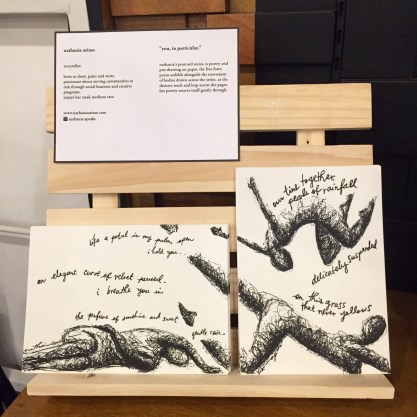 nathanie
storyteller.
born to draw, paint and write.
passionate about serving communities at
risk through social business and creative
programs.
enjoys her steak medium rare.
"you, in particular."
nathanie's postcard series, is poetry and
pen drawing on paper. the free form
poem unfolds alongside the movement
of bodies drawn across the
dancers reach and leap across the pages,
her poetry weaves itself gently through.
like a petal in my palm, open
i hold you.
an elegant curve of velvet
i breathe you in
the perfume of sunshine and sweat
gentle rain.
tied together,
two people of rainfall
delicately suspended
on this grass
that never yellows